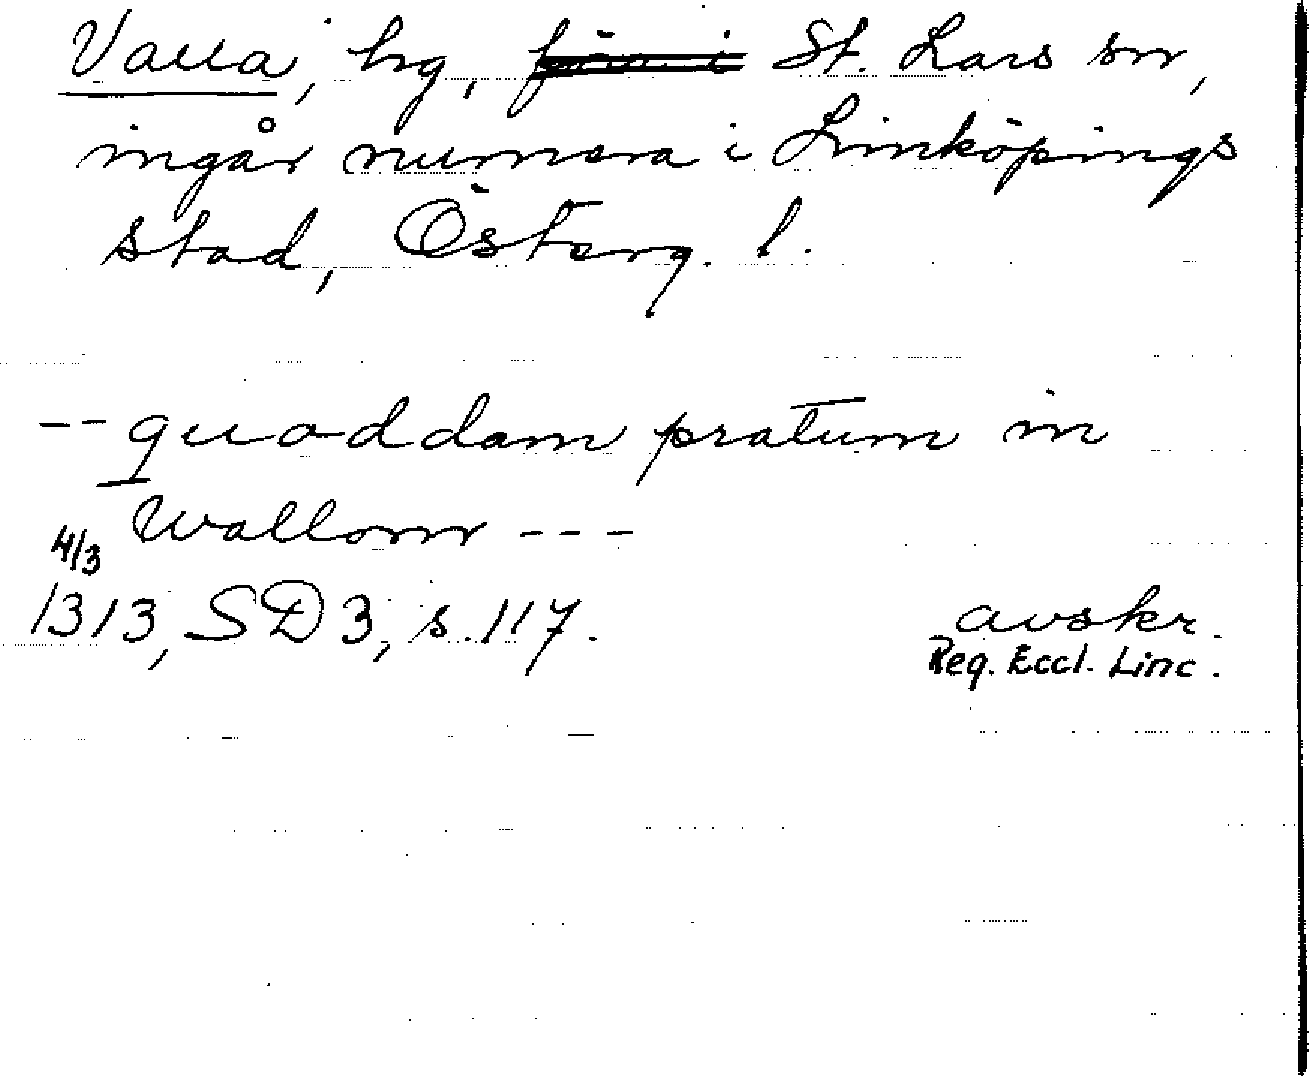 Valla, hg, St. Lars sn,
ingår numera i Linköpings
stad, Österg. l.
-- quoddam pratum in
Wallom ---
4/3
1313, SD 3, s. 117.
avskr.
Reg. Eccl. Linc.